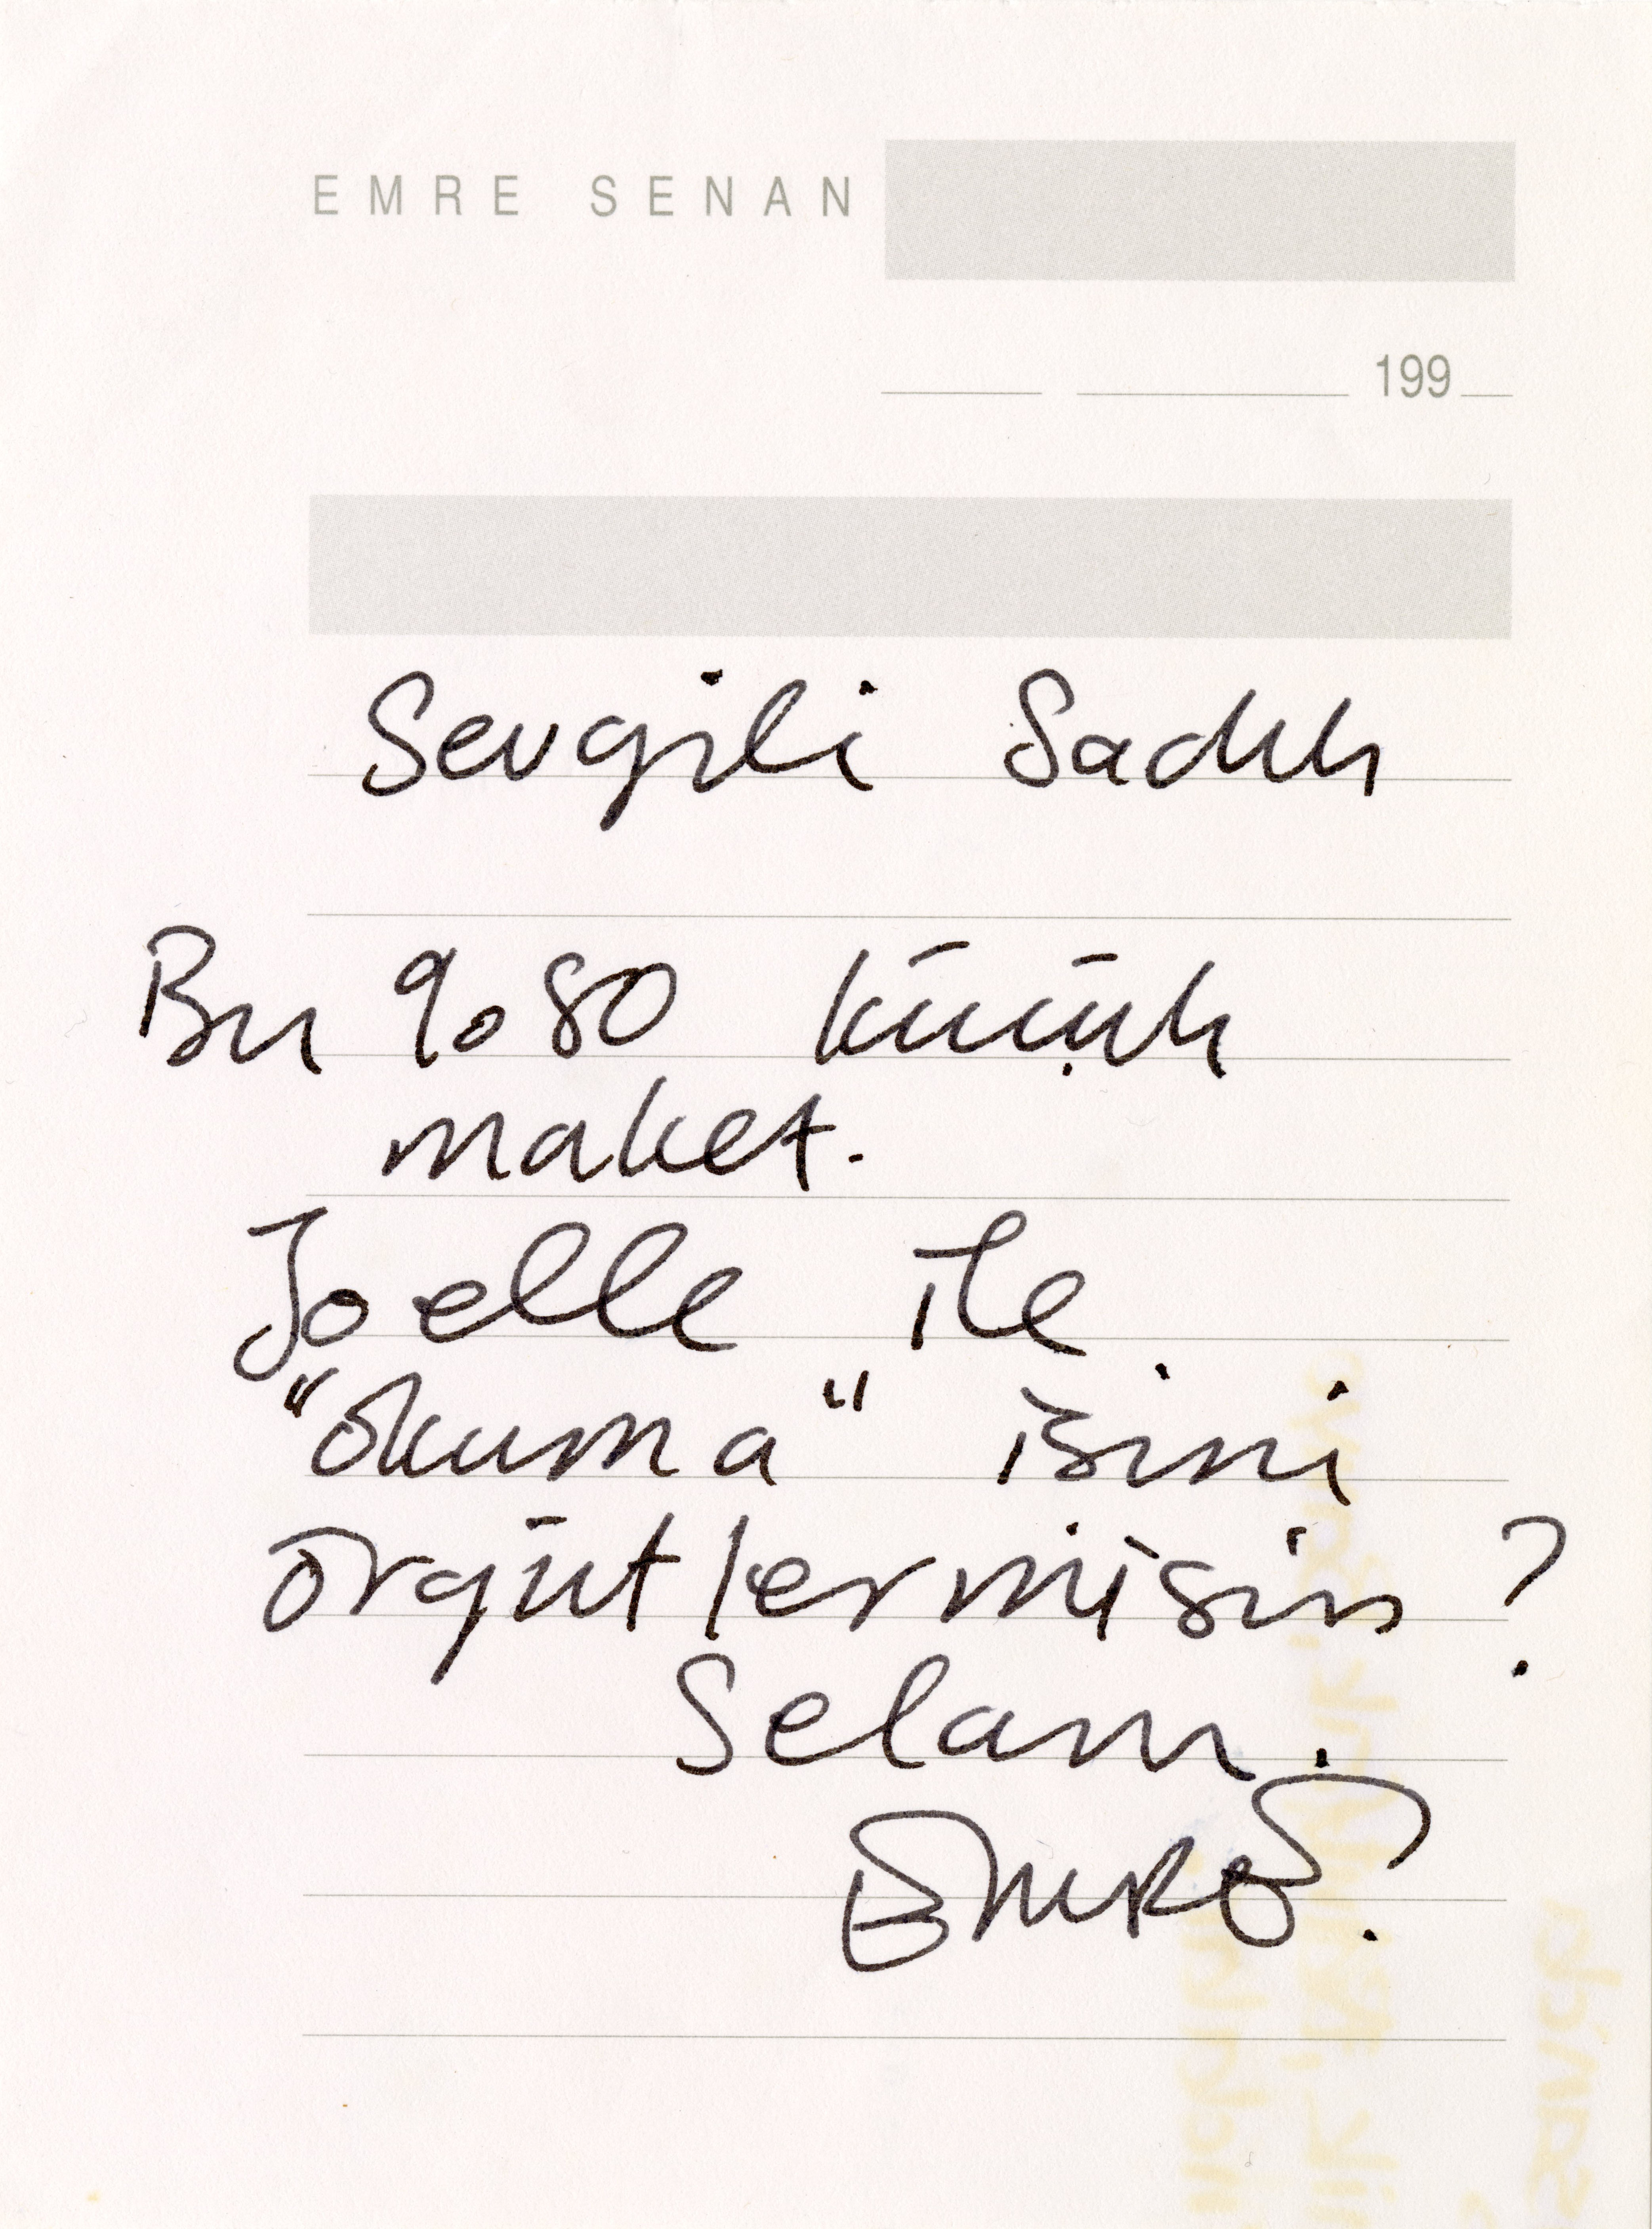 EMRE SENAN
199
Sevgili Sadık
Bu %80 küçük
maket.
Joelle ile
"okuma" işini
örgütlermisin?
Selam.
Emre.